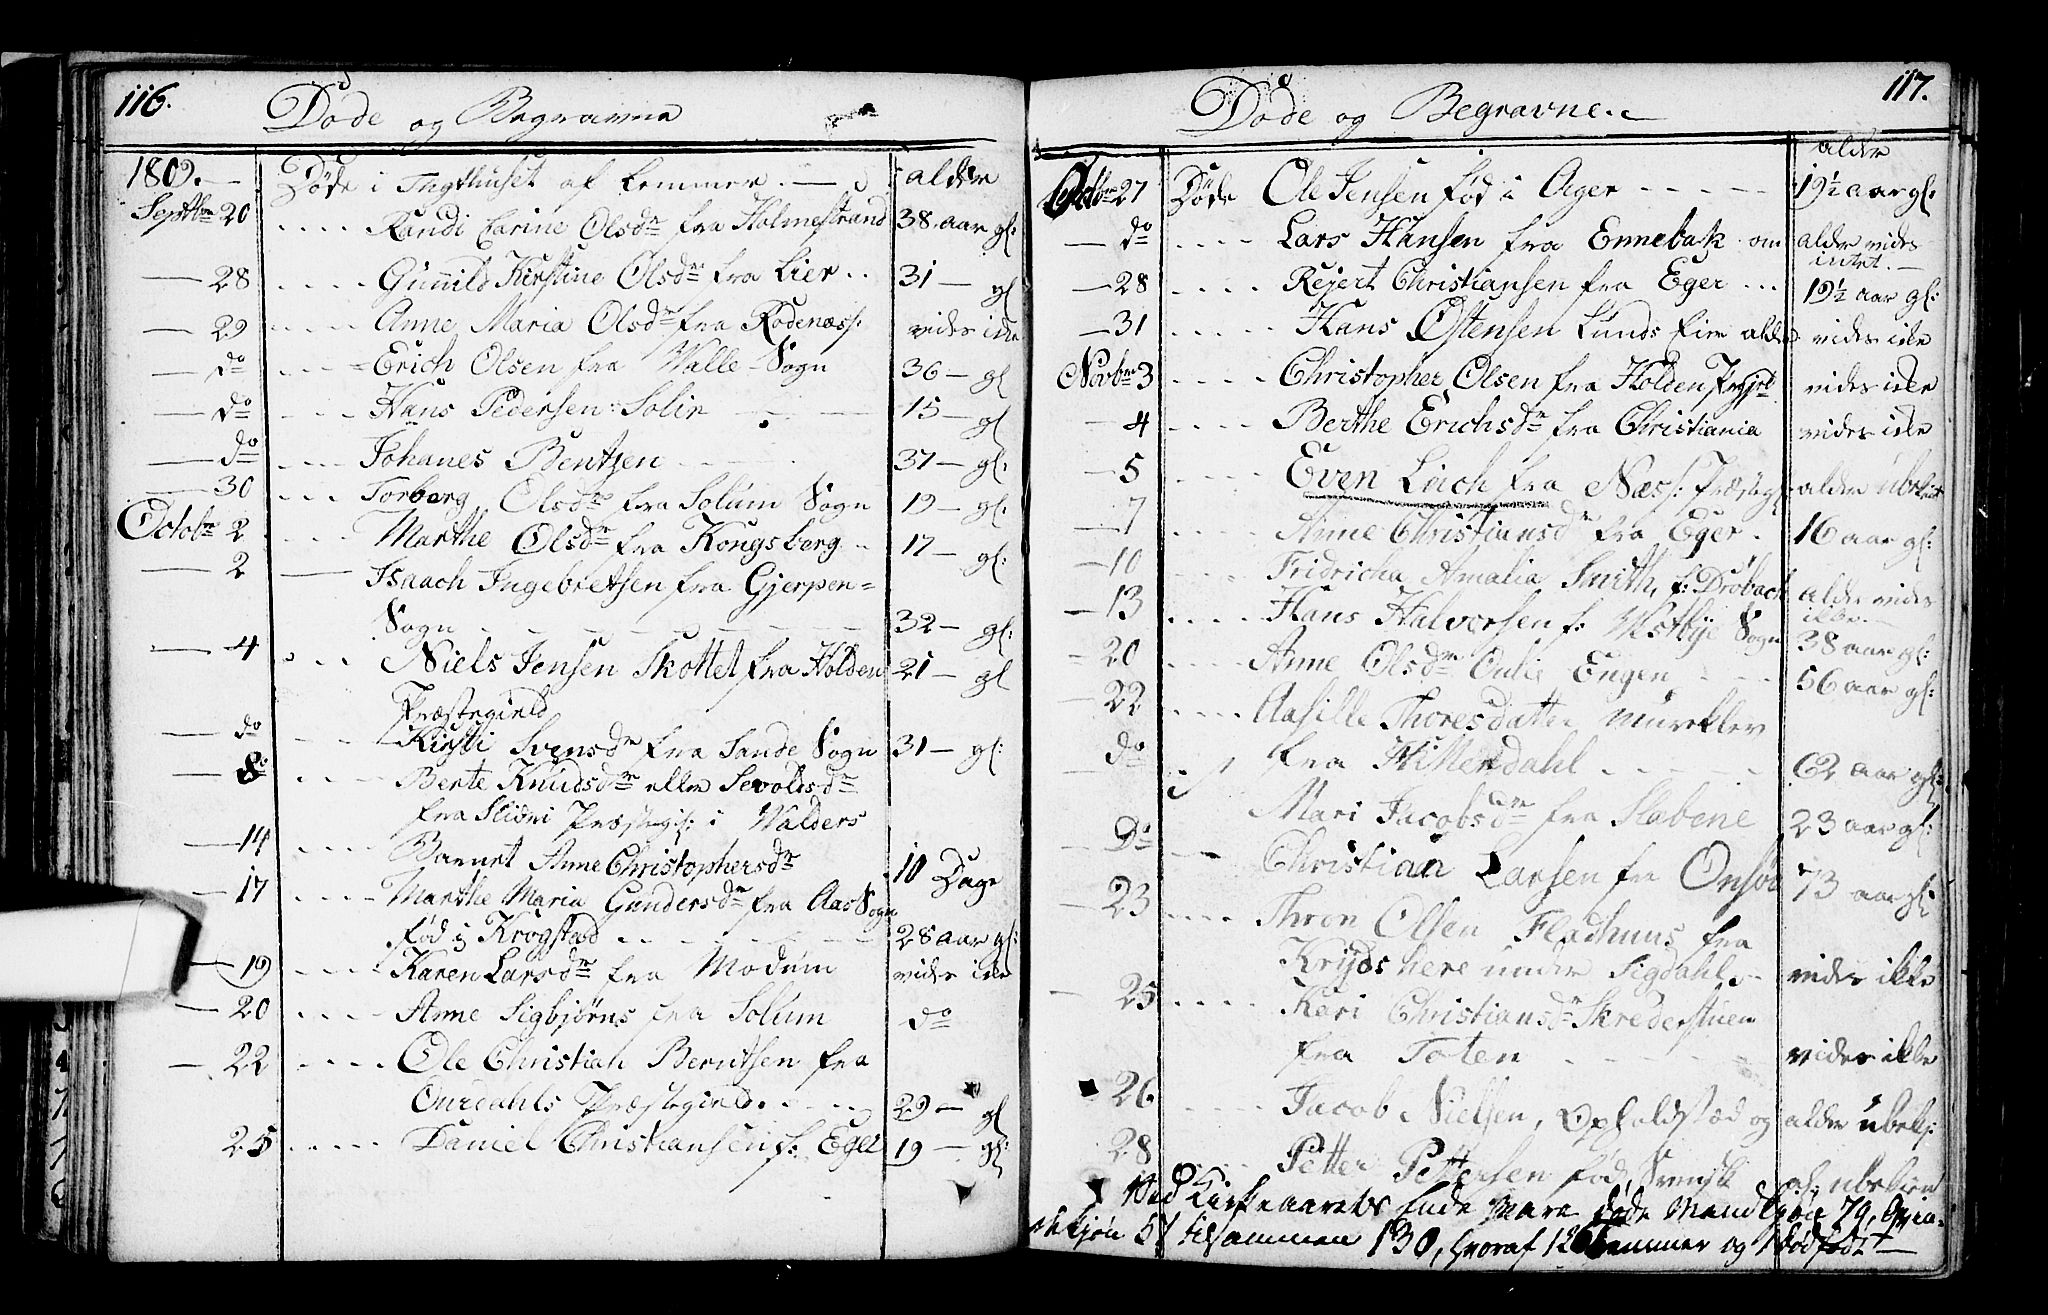 116.
Døde og Begravne
1809. Døde i Tugthuset af Lemmer. alder
Septbr 20 Randi Carine Olsdr fra Holmestrand 38 aar gl:
28 Gunild Kirstine Olsdr fra Lier 31 gl
29 Anne Maria Olsdr fra Rødenæss: vides ikke
do Erich Olsen fra Walle Sogn 36 gl
do Hans Pedersen Solie 15 gl
do Johanes Bentzen 37 gl:
30 Torberg Olsdr fra Solum Sogn 19 gl:
Octobr 2 Marthe Olsdr fra Kongsberg 17 gl:
2 Isaach Ingebretsen fra Gjerpen=
Sogn 32 gl:
4 Niels Jensen Skottet fra Holden 21 gl
Præstegield
do Kirsti Svensdr fra Sande Sogn 31 gl:
8 Berte Knudsdr eller Sevoldsdr
fra Slidri Præstegl: i Walders
14 Barnet Anne Christophersdr 10 Dage
17 Marthe Maria Gundersdr fra Aas Sogn
fød i Krogstad 28 aar gl:
19 Karen Larsdr fra Modum vides ikke
20 Anne Sigbjørns fra Solum do
22 Ole Christian Berntsen fra
Ourdahls Præstegield 29 gl
25 Daniel Christiansen f: Eger 19 gl:
117.
Døde og Begravne.
alder
Octbr 27 Døde Ole Jensen fød i Ager 19½ aar gl:
do Lars Hansen fra Ennebak om alder vides
intet.
28 Rejert Christiansen fra Eger 19½ aar gl:
31 Hans Ostensen Lunds Eie alder vides ikke
Novbr 3 Christopher Olsen fra Holden Præjld vides ikke
4 Berthe Erichsdr fra Christiania vides ikke
5 Even Leich fra Næss: Præstegl: alder ubekient
7 Anne Christiansdr fra Eger 16 aar gl:
10 Fridricha Amalia Smith, f: Drøbach alder vides
ikke.
13 Hans Halvorsen f: Westbye Sogn 38 aar gl:
20 Anne Olsdr Oulie Engen 56 aar gl:
22 Aasille Thoresdatter
fra Hittendahl 62 aar gl:
do Mari Jacobsdr fra Slabene 23 aar gl:
Do Christian Larsen fra Onsøe 73 aar gl:
23 Thron Olsen Fladhuus fra
Krydsherre under Sigdahl vides ikke
25 Kari Christiansdr Skrederstuen
fra Toten vides ikke
26 Jacob Nielsen, Opholdstæd og alder ubek:
28 Petter Pettersen fød, Svensk al: ubekien
Ved Kirkeaarets Ende Vare døde Mandkjøn 79, Qvin-
dekjøn 51 tilsammen 130, hvoraf 126 Lemmer og 1 dødfødt